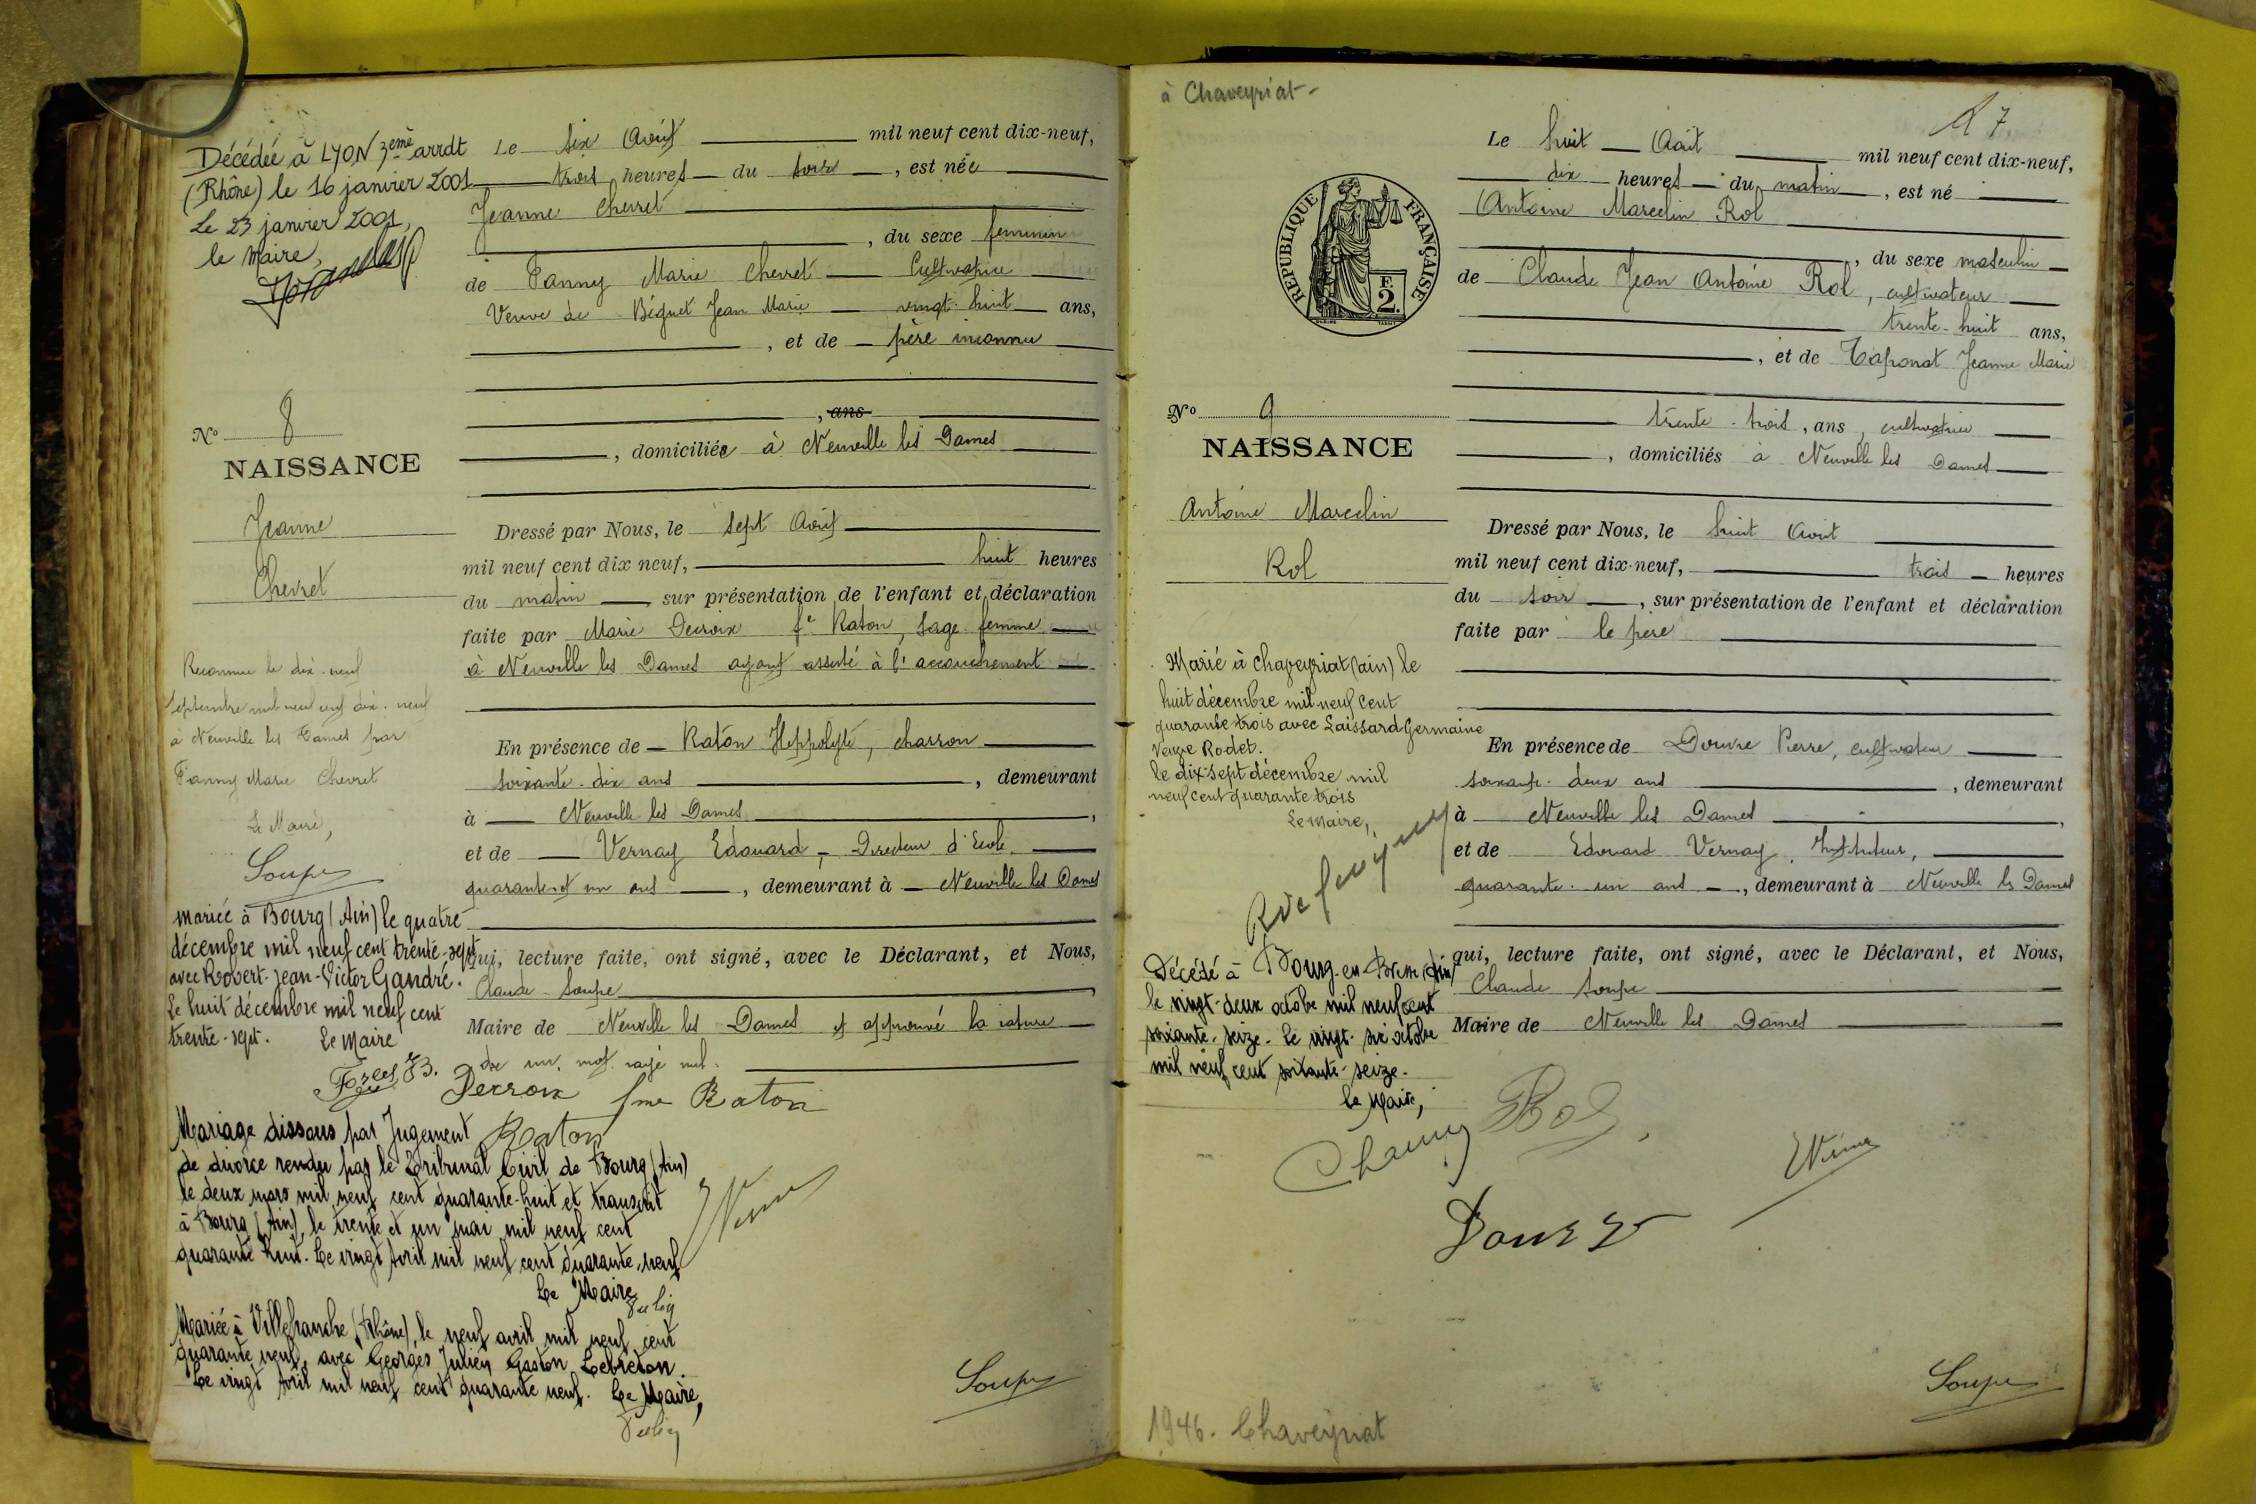 Décédée à LYON 3ème arrdt
(Rhône) le 16 janvier 2001
Le 23 janvier 2001,
le Maire,
Le six Août mil neuf cent dix-neuf,
trois heures du soir, est née
Jeanne Chevret
, du sexe feminin
de Fanny Marie Chevret Cultivatrice
Veuve de Béguet Jean Marie vingt-huit ans,
, et de père inconnu
, ans
, domiciliée à Neuville les Dames
No 8
NAISSANCE
Jeanne
Chevret
Dressé par Nous, le sept Août
mil neuf cent dix neuf, huit heures
du matin, sur présentation de l'enfant et déclaration
faite par Marie Decroix fe Raton, sage femme
à Neuville les Dames ayant assisté à l'accouchement
En présence de Raton Hippolyte, charron
soixante-dix ans, demeurant
à Neuville les Dames,
et de Vernay Edouard, Directeur d'Ecole
quarante et un ans, demeurant à Neuville les Dames
qui, lecture faite, ont signé, avec le Déclarant, et Nous,
Claude Soupe
Maire de Neuville les Dames et approuvé la rature
de un mot rayé nul.
Reconnue le dix-neuf
septembre mil neuf cent dix-neuf
à Neuville les Dames par
Fanny Marie Chevret
Le Maire,
Soupe
mariée à Bourg (Ain) le quatre
décembre mil neuf cent trente-sept
avec Robert-Jean-Victor Gandré.
Le huit décembre mil neuf cent
trente-sept. Le Maire
Decroix fme Raton
Raton
Mariage dissous par Jugement
de divorce rendu par le Tribunal Civil de Bourg (Ain)
le deux mars mil neuf cent quarante-huit et transcrit
à Bourg (Ain), le trente et un mai mil neuf cent
quarante huit. Le vingt Avril mil neuf cent quarante-neuf
Le Maire
Mariée à Villefranche (Rhône), le neuf avril mil neuf cent
quarante neuf, avec Georges Julien Gaston Lebreton.
Le vingt Avril mil neuf cent quarante neuf. Le Maire,
Soupe
à Chaveyriat-
7
RÉPUBLIQUE FRANÇAISE
F.
2.
Le huit Août mil neuf cent dix-neuf,
dix heures du matin, est né
Antoine Marcelin Rol
, du sexe masculin
de Claude Jean Antoine Rol, cultivateur
trente-huit ans,
, et de Taponat Jeanne Marie
trente-trois, ans, cultivatrice
, domiciliés à Neuville les Dames
No 9
NAISSANCE
Antoine Marcelin
Rol
Dressé par Nous, le huit Août
mil neuf cent dix-neuf, trois heures
du soir, sur présentation de l'enfant et déclaration
faite par le père
En présence de Douvre Pierre, cultivateur
soixante-deux ans, demeurant
à Neuville les Dames,
et de Edouard Vernay, Instituteur,
quarante-un ans, demeurant à Neuville les Dames
qui, lecture faite, ont signé, avec le Déclarant, et Nous,
Claude Soupe
Maire de Neuville les Dames
Marié à Chaveyriat (ain) le
huit décembre mil neuf cent
quarante trois avec Laissard Germaine
Veuve Rodet.
le dix-sept décembre mil
neuf cent quarante trois
Le Maire,
Décédé à Bourg-en-Bresse (Ain)
le vingt-deux octobre mil neuf cent
soixante-seize. Le vingt-six octobre
mil neuf cent soixante-seize.
Le Maire,
Rol
Soupe
1946. Chaveyriat